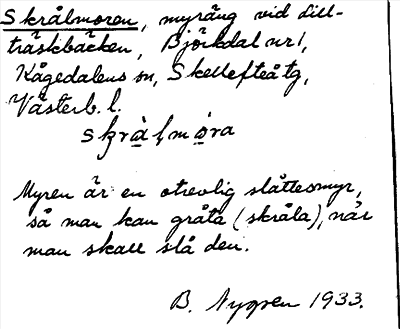 Skrålmoren, myräng vid Lill-
träskbäcken, Björkdal nr 1,
Kågedalens sn, Skellefteå tg,
Västerb. l.
skrålmóra
Myren är en otrevlig slåttesmyr,
så man kan gråta (skråla), när
man skall slå den.
B. Nygren 1933.